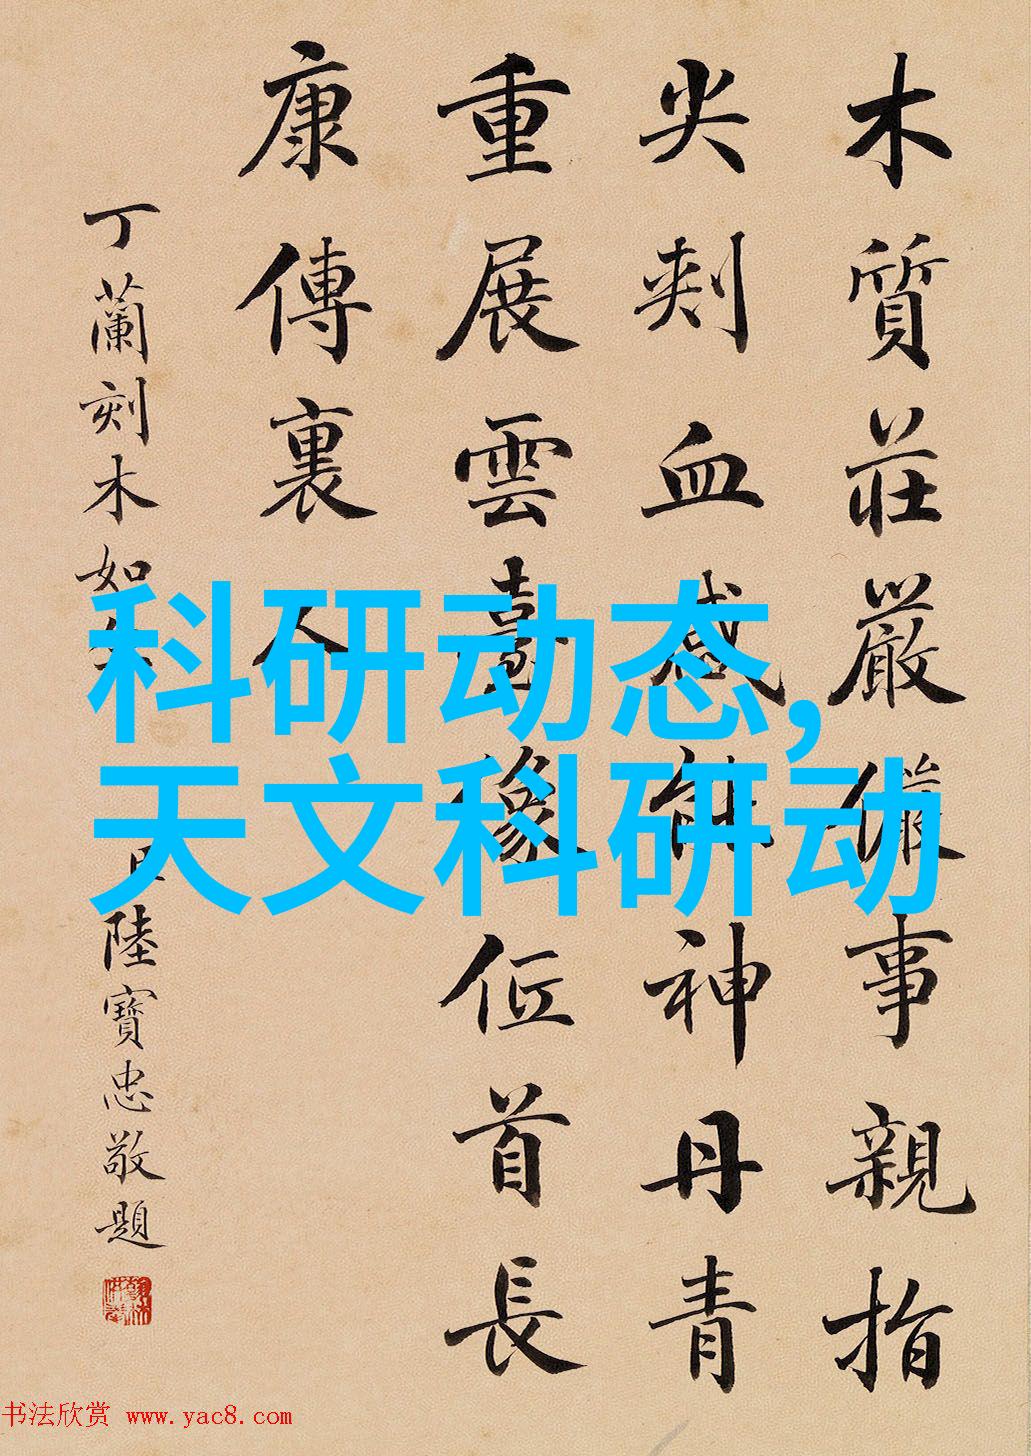 木質莊嚴儼事親指
尖刾血感能神丹青
重展雲臺像位首長
康傳裏人
丁蘭刻木如
陸寶忠敬題
科研动态,
天文科研动
书法欣赏 www.yac8.com